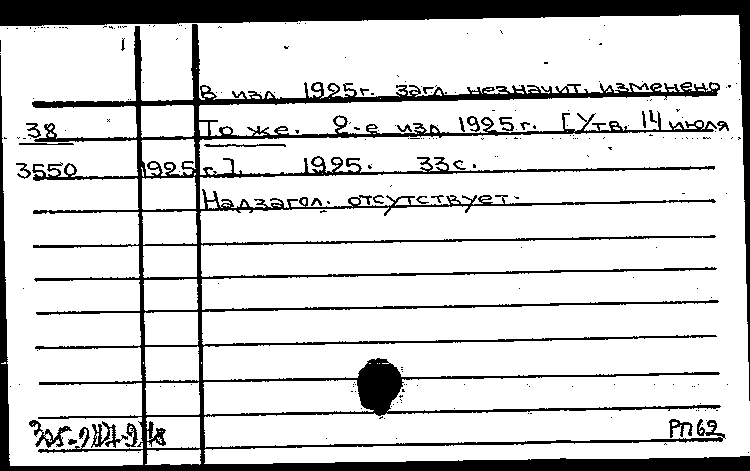 В изд. 1925г. загл. незначит. изменено.
38 То же. 2-е изд. 1925г. [Утв. 14 июля
3550 1925 г.]. 1925. 33с.
Надзагол. отсутствует.
РП62